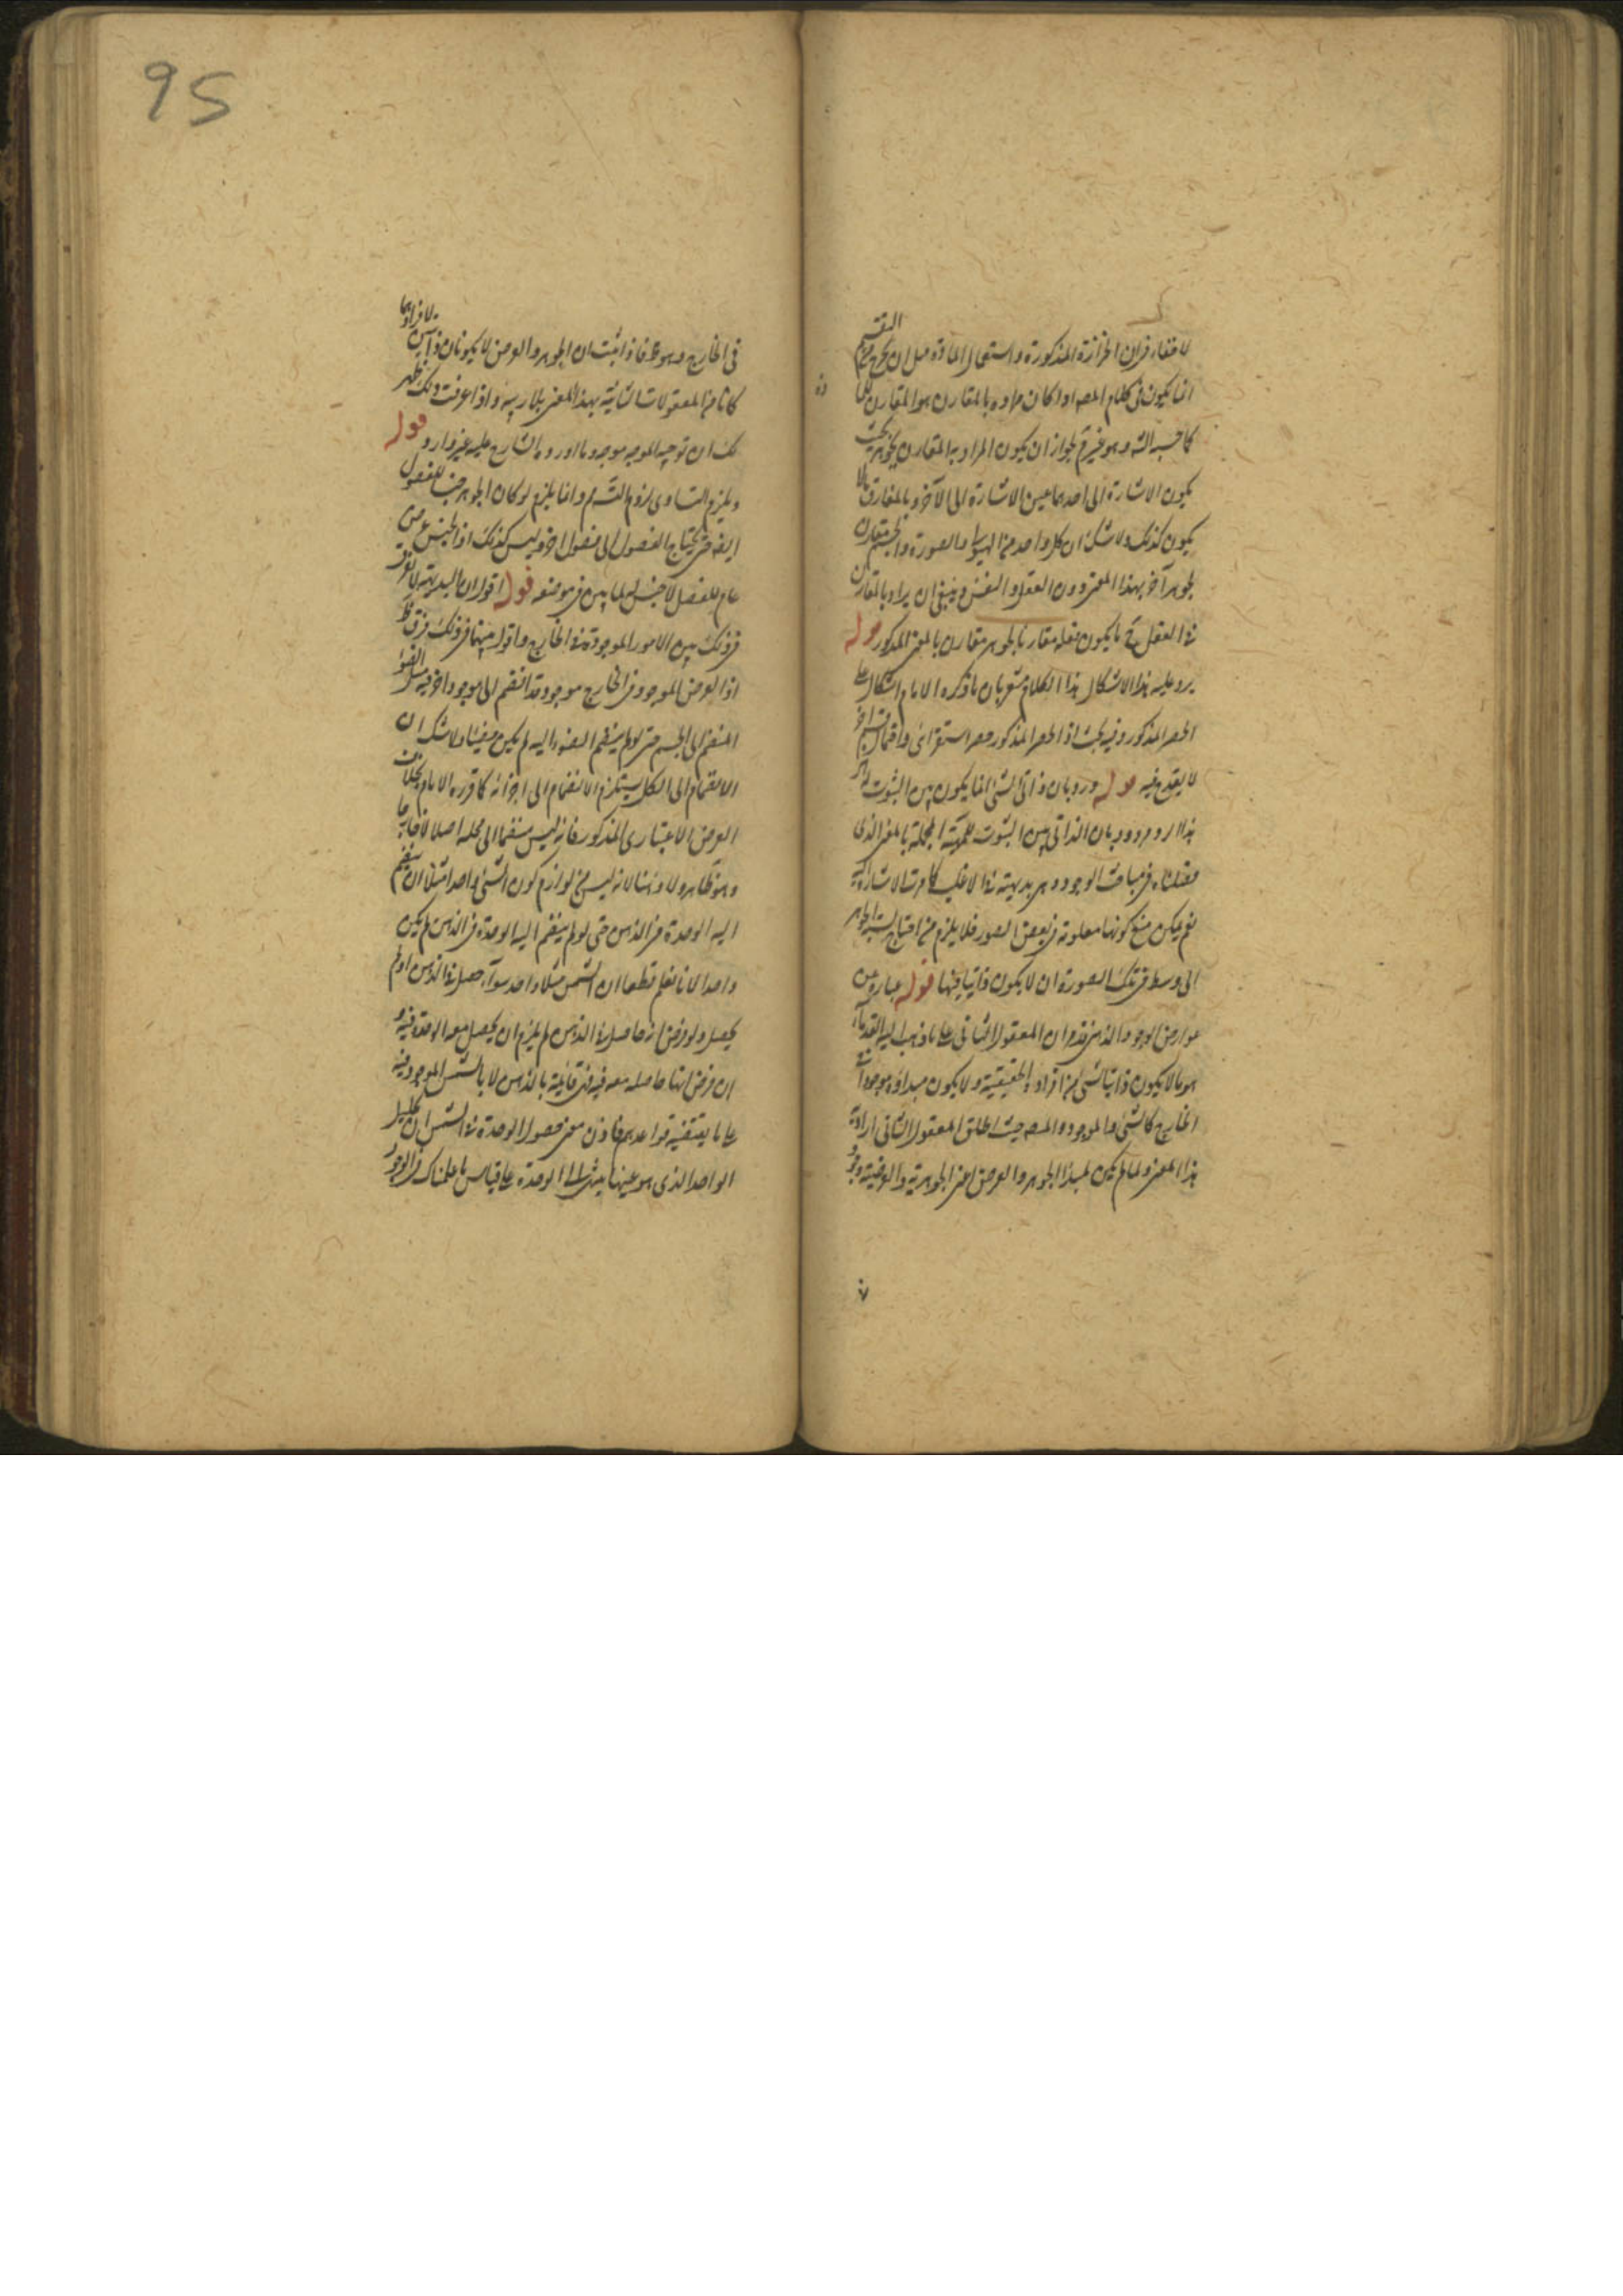 انما يكون فى كلام المص اذا كان مراده بالمقارن هو المقارن
كما حسبه الش وهو غير لجواز ان يكون المراد به المقارن بحيث
يكون الاشارة الى احدهما عين الاشارة الى الآخر وبالمفارق ما لا
يكون كذلك ولا شك ان كل واحد من الهيولى والصورة والجسم مقارن
لجوهر آخر بهذا المعنى دون العقل والنفس وينبغى ان يراد بالمقارن
فى العقل ما يكون فعله مقارنا لجوهر مقارن بالمعنى المذكور قوله
يرد عليه هذا الاشكال هذا الكلام مشعر بان ما ذكره الامام اشكال على
الحصر المذكور وفيه بحث اذ الحصر المذكور حصر استقرائى واحتمال قسم آخر
لا يقدح فيه قوله ورد بان ذاتى الشئ انما يكون بين الثبوت له
هذا الرد مردود بان الذاتى بين الثبوت للمهية المجملة بالمعنى الذى
فصلناه فى مباحث الوجود وهى بديهية فى الاغلب كما مرت الاشارة اليه
نعم يمكن منع كونها معلومة فى بعض الصور فلا يلزم من احتياج
الى وسط فى تلك الصورة ان لا يكون ذاتيا فيها قوله عبارة عن
عوارض الوجود الذهنى قد مر ان المعقول الثانى على ما ذهب اليه القدماء
هو ما لا يكون ذاتيا لشئ من افراده الحقيقية ولا يكون مبداؤه موجودا فى
الخارج كالشئ والموجود والمص حيث اطلق المعقول الثانى اراد به
هذا المعنى ولما لم يكن لمبدأ الجوهر والعرض اعنى الجوهرية والعرضية وجود
95
فى الخارج وهو ظ فاذا ثبت ان الجوهر والعرض لا يكونان ذاتيين لافرادهما
كانا من المعقولات الثانية بهذا المعنى بلا ريبة واذا عرفت ذلك ظهر
لك ان توجيه الموجه موجه وما اورده الشارح عليه غير وارد قوله
ويلزم التساوى لزوم التس م وانما يلزم لو كان الجوهر جنسا للفصول
ايضا حتى يحتاج الفصول الى فصول اخر وليس كذلك اذ الجنس عرض
عام للفصل لا جنس له لما بين فى موضعه قوله اقول ان البديهة لا تفرق
فى ذلك بين الامور الموجودة فى الخارج واقول بينهما فى ذلك فرق ظ
اذ العرض الموجود فى الخارج موجود قد انضم الى موجود آخر فيه مثل الضوء
المنضم الى الجسم حتى لو لم ينضم الضوء اليه لم يكن مضيئا ولا شك ان
الانضمام الى الكل يستلزم الانضمام الى اجزائه كما قرره الامام بخلاف
العرض الاعتبارى المذكور فانه ليس منضما الى محله اصلا لا خارجا
وهو ظاهر ولا ذهنا لانه ليس من لوازم كون الشئ واحدا مثلا ان ينضم
اليه الوحدة فى الذهن حتى لو لم ينضم اليه الوحدة فى الذهن لم يكن
واحدا لانا نعلم قطعا ان الشمس مثلا واحد سواء حصل فى الذهن او لم
يحصل ولو فرض انه حاصل فى الذهن لم يلزم ان يحصل معه الوحدة فيه ولو
ان فرض انها حاصلة معه فيه فهى قائمة بالذهن لا بالشمس الموجود فيه
على ما يقتضيه قواعدهم فاذن معنى حصول الوحدة فى الشمس ان تحليل
الواحد الذى هو عينها ينتهى الى الوحدة على قياس ما علمناك فى الوجود